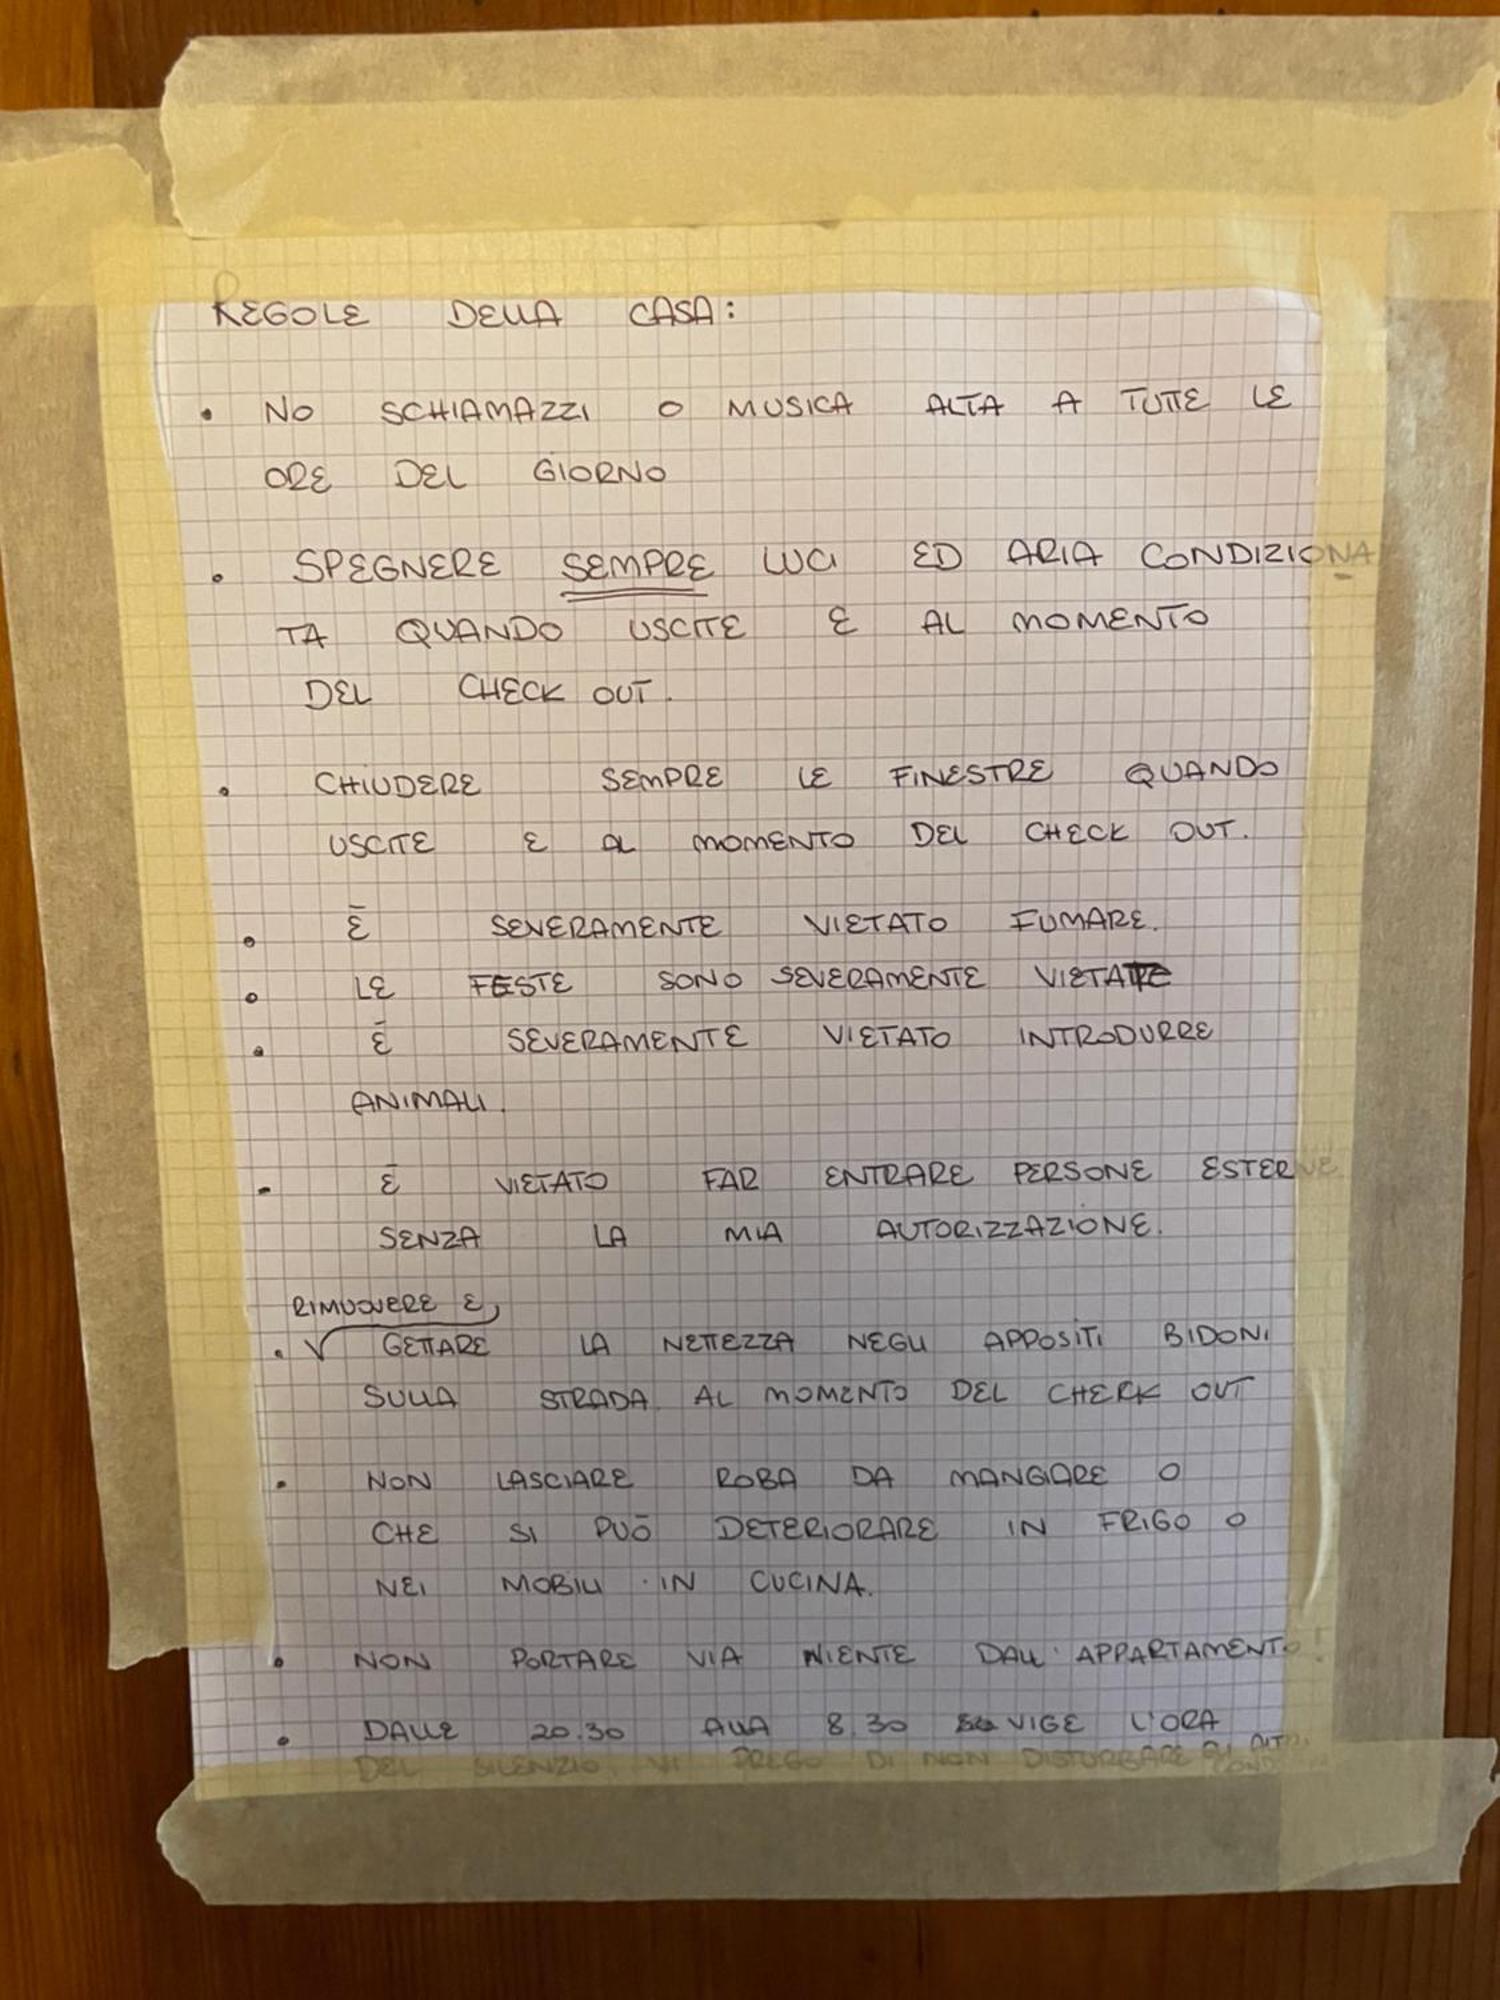 REGOLE DELLA CASA:
• NO SCHIAMAZZI O MUSICA ALTA A TUTTE LE
ORE DEL GIORNO
• SPEGNERE SEMPRE LUCI ED ARIA CONDIZIONA
TA QUANDO USCITE E AL MOMENTO
DEL CHECK OUT.
• CHIUDERE SEMPRE LE FINESTRE QUANDO
USCITE E AL MOMENTO DEL CHECK OUT.
• Ē SEVERAMENTE VIETATO FUMARE.
• LE FESTE SONO SEVERAMENTE VIETATE
• Ē SEVERAMENTE VIETATO INTRODURRE
ANIMALI.
- Ē VIETATO FAR ENTRARE PERSONE ESTERNE
SENZA LA MIA AUTORIZZAZIONE.
RIMUOVERE E
• √ GETTARE LA NETTEZZA NEGLI APPOSITI BIDONI
SULLA STRADA AL MOMENTO DEL CHECK OUT
• NON LASCIARE ROBA DA MANGIARE O
CHE SI PUŌ DETERIORARE IN FRIGO O
NEI MOBILI IN CUCINA.
• NON PORTARE VIA NIENTE DALL'APPARTAMENTO!
• DALLE 20.30 ALLA 8.30 VIGE L'ORA
DEL SILENZIO, VI PREGO DI NON DISTURBARE